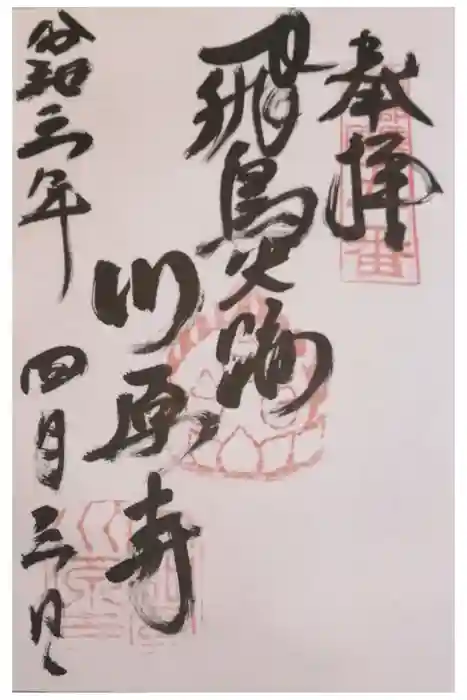 奉拝
飛鳥 跡
川原寺
令和三年 四月三日